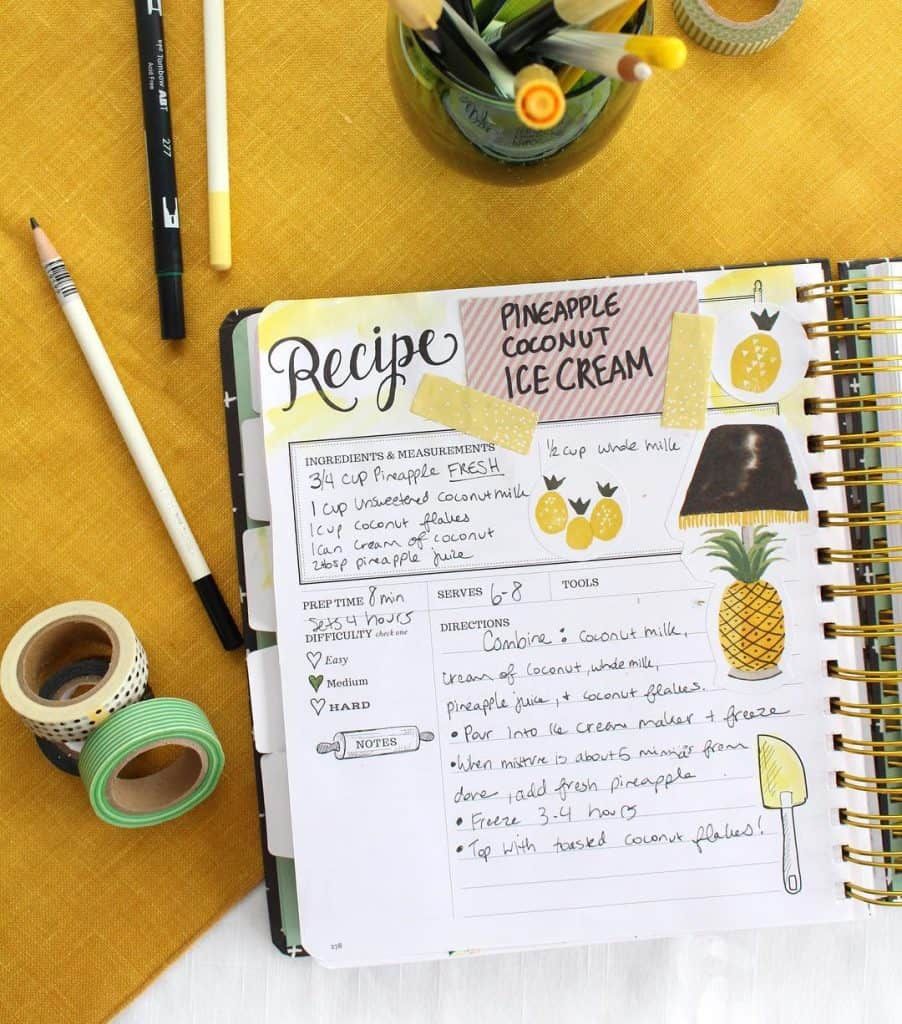 Tombow ABT
Acid Free
277
Recipe
PINEAPPLE
COCONUT
ICE CREAM
INGREDIENTS & MEASUREMENTS
3/4 cup Pineapple FRESH
1 cup Unsweetened Coconut milk
1 cup coconut flakes
1 can cream of coconut
2 tbsp pineapple juice
1/2 cup whole milk
PREP TIME 8 min
Sets 4 hours
SERVES 6-8
TOOLS
DIFFICULTY check one
Easy
Medium
HARD
NOTES
DIRECTIONS
Combine: coconut milk,
cream of coconut, whole milk,
pineapple juice, + coconut flakes.
• Pour into Ice cream maker + freeze
• When mixture is about 5 from
done, add fresh pineapple
• Freeze 3-4 hours
• Top with toasted coconut flakes!
278